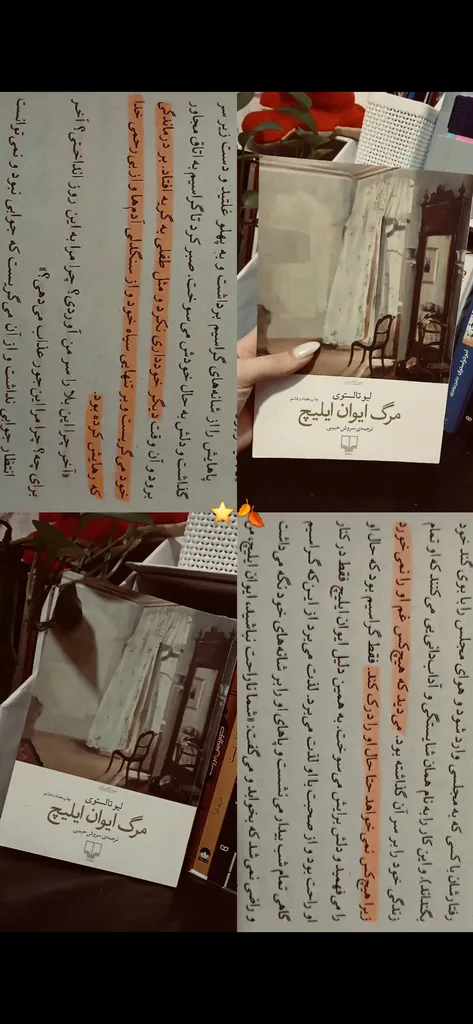 پاهایش را از شانه‌های گراسیم برداشت و به پهلو غلتید و دست زیر سر
گذاشت و دلش به حال خودش می‌سوخت. صبر کرد تا گراسیم به اتاق مجاور
برود و آن وقت دیگر خودداری نکرد و مثل طفلی به گریه افتاد. بر درماندگی
خود می‌گریست و بر تنهایی سیاه خود و از سنگدلی آدم‌ها و از بی‌رحمی خدا
که رهایش کرده بود.
«آخر چرا این بلا را سر من آوردی؟ چرا مرا به این روز انداختی؟ آخر
برای چه؟ چرا مرا این جور عذاب می‌دهی؟»
انتظار جوابی نداشت و از آن می‌گریست که جوابی نبود و نمی‌توانست
لیو تالستوی
مرگ ایوان ایلیچ
ترجمه‌ی سروش حبیبی
لیو تالستوی
مرگ ایوان ایلیچ
ترجمه‌ی سروش حبیبی
رفتارشان با کسی که به مجلسی وارد شود و هوای مجلس را با بوی گند خود
بگنداند)، و این کار را به نام همان شایستگی و آداب‌دانی‌یی می‌کنند که او تمام
زندگی خود را بر سر آن گذاشته بود. می‌دید که هیچ‌کس غم او را نمی‌خورد
زیرا هیچ‌کس نمی‌خواهد حتا حال او را درک کند. فقط گراسیم بود که حال او
را می‌فهمید و دلش برایش می‌سوخت. به همین دلیل ایوان ایلیچ فقط در کنار
او راحت بود و از صحبت با او لذت می‌برد. لذت می‌برد از این که گراسیم
گاهی تمام شب بیدار می‌نشست و پاهای او را بر شانه‌های خود نگه می‌داشت
و راضی نمی‌شد که بخوابد و می‌گفت: «شما ناراحت نباشید، ایوان ایلیچ، من